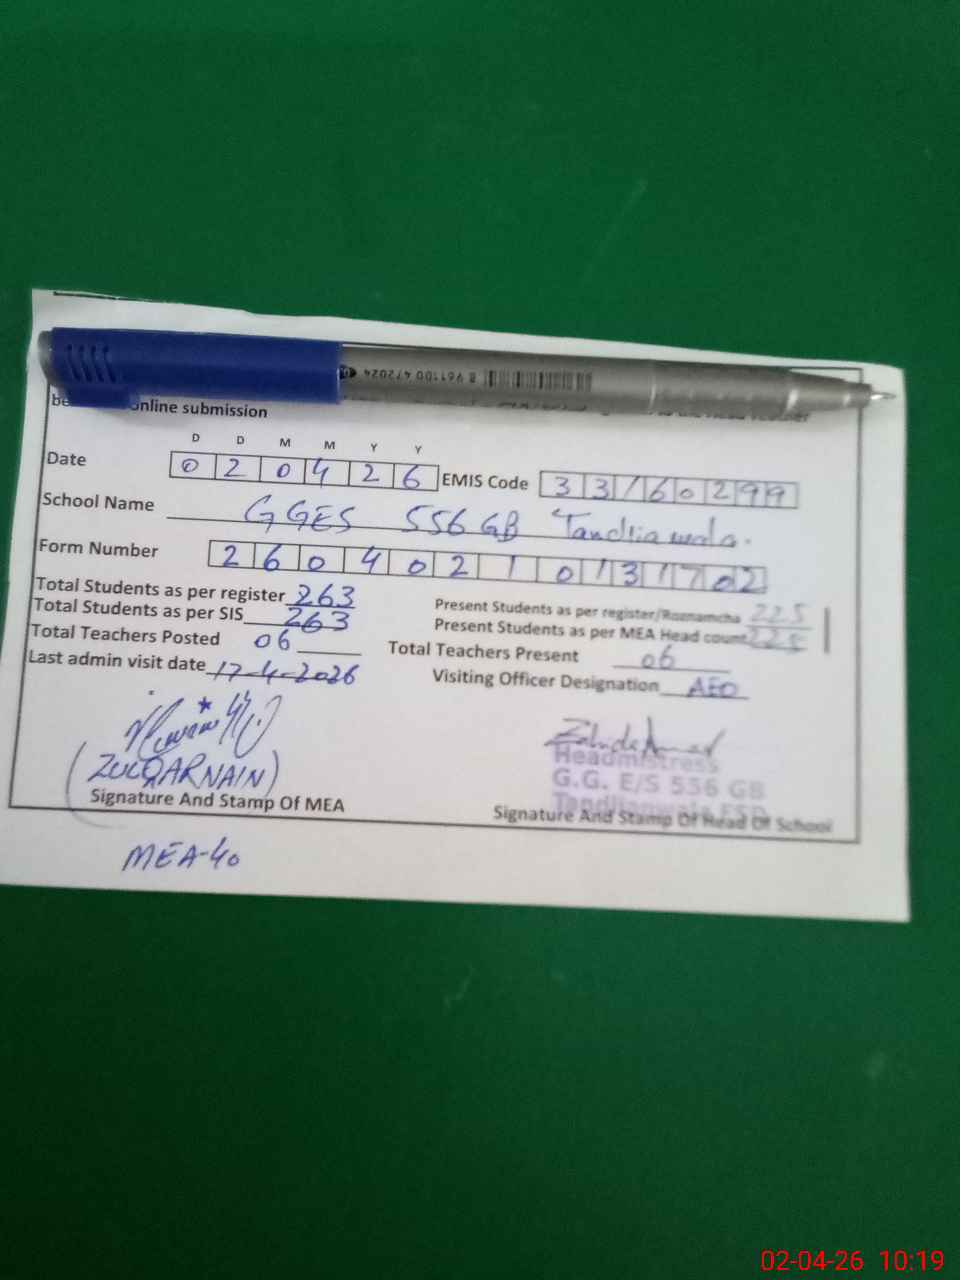 online submission
D D M M Y Y
Date 0 2 0 4 2 6 EMIS Code 3 3 1 6 0 2 9 9
School Name GGES 556 GB Tandlianwala.
Form Number 2 6 0 4 0 2 1 0 1 3 1 7 0 2
Total Students as per register 263
Present Students as per register/Roznamcha 225
Total Students as per SIS 263
Present Students as per MEA Head count 225
Total Teachers Posted 06
Total Teachers Present 06
Last admin visit date 17-4-2026
Visiting Officer Designation AEO
(ZULQARNAIN)
Headmistress
G.G. E/S 556 GB
Tandlianwala FSD
Signature And Stamp Of MEA
Signature And Stamp Of Head Of School
MEA-40
02-04-26 10:19